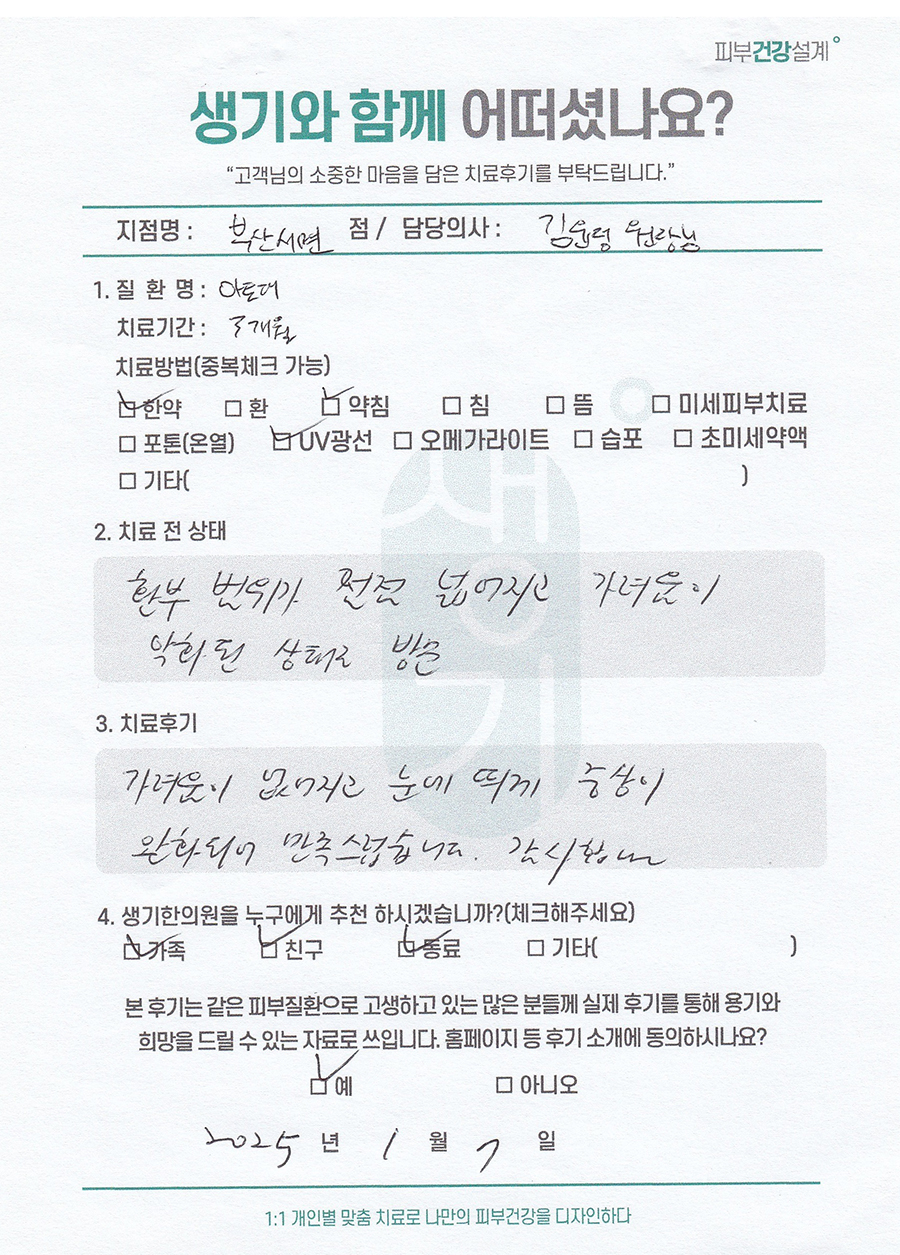 피부건강설계
생기와 함께 어떠셨나요?
“고객님의 소중한 마음을 담은 치료후기를 부탁드립니다.”
지점명 : 부산서면 점 / 담당의사 : 김윤영 원장님
1. 질 환 명 : 아토피
치료기간 : 3개월
치료방법(중복체크 가능)
☑ 한약 □ 환 ☑ 약침 □ 침 □ 뜸 □ 미세피부치료
□ 포톤(온열) ☑ UV광선 □ 오메가라이트 □ 습포 □ 초미세약액
□ 기타( )
2. 치료 전 상태
환부 범위가 점점 넓어지고 가려움이
악화된 상태로 방문
3. 치료후기
가려움이 없어지고 눈에 띄게 증상이
완화되어 만족스럽습니다. 감사합니다
4. 생기한의원을 누구에게 추천 하시겠습니까?(체크해주세요)
☑ 가족 ☑ 친구 ☑ 동료 □ 기타( )
본 후기는 같은 피부질환으로 고생하고 있는 많은 분들께 실제 후기를 통해 용기와
희망을 드릴 수 있는 자료로 쓰입니다. 홈페이지 등 후기 소개에 동의하시나요?
☑ 예 □ 아니오
2025 년 1 월 7 일
1:1 개인별 맞춤 치료로 나만의 피부건강을 디자인하다
생기